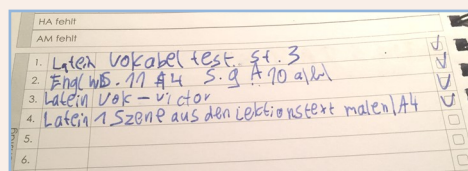 HA fehlt
AM fehlt
1. Latein Vokabeltest. St. 3
2. Engl WB. 11 A4 S. 9 A 10 a/b/
3. Latein Vok - victor
4. Latein 1 Szene aus den Lektionstext malen/A4
5.
6.